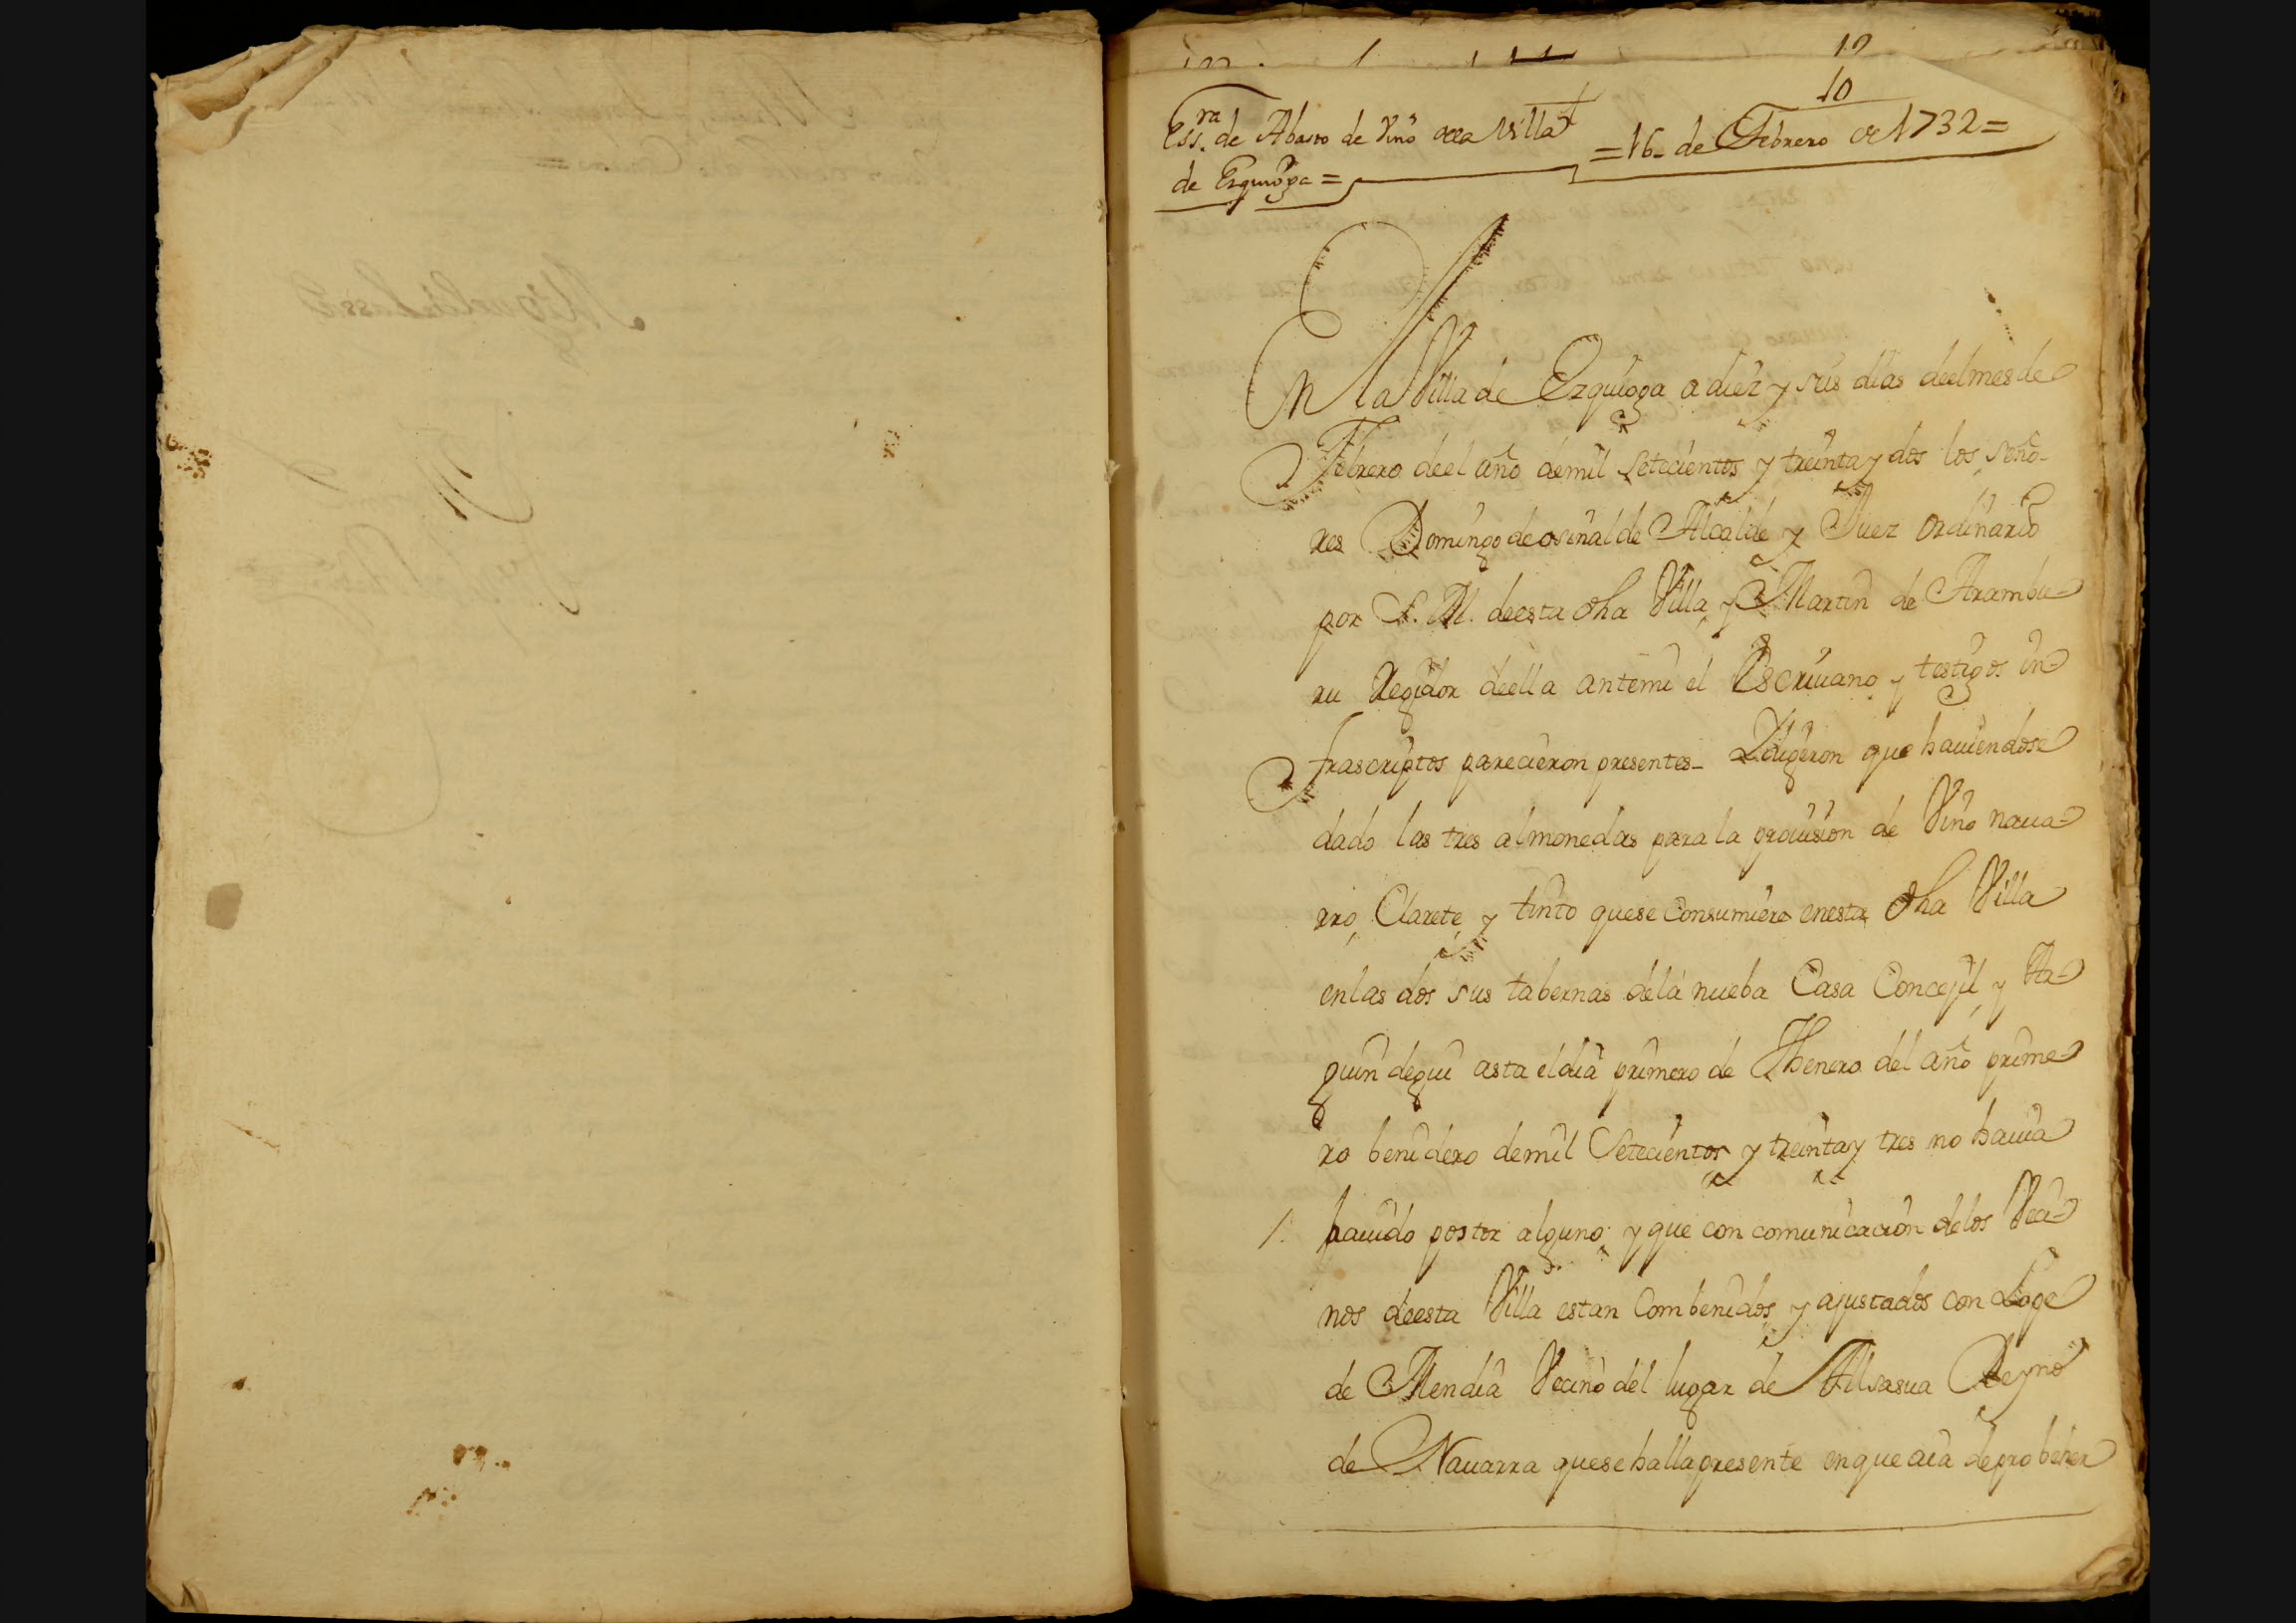 10
Essra. de Abasto de Vino della Villa
de Ezquioga =
= 16 de Febrero de 1732 =
En la Villa de Ezquioga a diez y seis dias deel mes de
Febrero deel año de mil setecientos y treinta y dos los seño-
res Domingo de osinalde Alcalde y Juez ordinario
por S. M. de esta dha Villa, y Martin de Arambu-
ru Regidor de ella ante mi el Escriuano y testigos in-
frascriptos parecieron presentes_ Y digeron que hauiendose
dado las tres almonedas para la prouision de Vino naua-
rro, Clarete, y tinto que se Consumiere en esta dha Villa
en las dos sus tabernas de la nueba Casa Concejil, y Ar-
guindegui asta el dia primero de Henero del año prime-
ro benidero de mil Setecientos y treinta y tres no hauia
1. hauido postor alguno; y que con comunicacion de los Veci-
nos de esta Villa estan Combenidos, y ajustados con Lope
de Mendia Vecino del lugar de Alsasua Reyno
de Nauarra que se halla presente en que aia de probeher